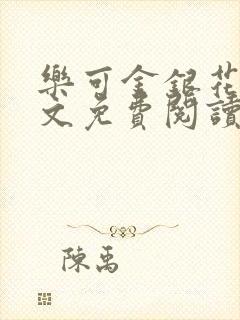 樂可金銀花
文免費閱讀
陳禹